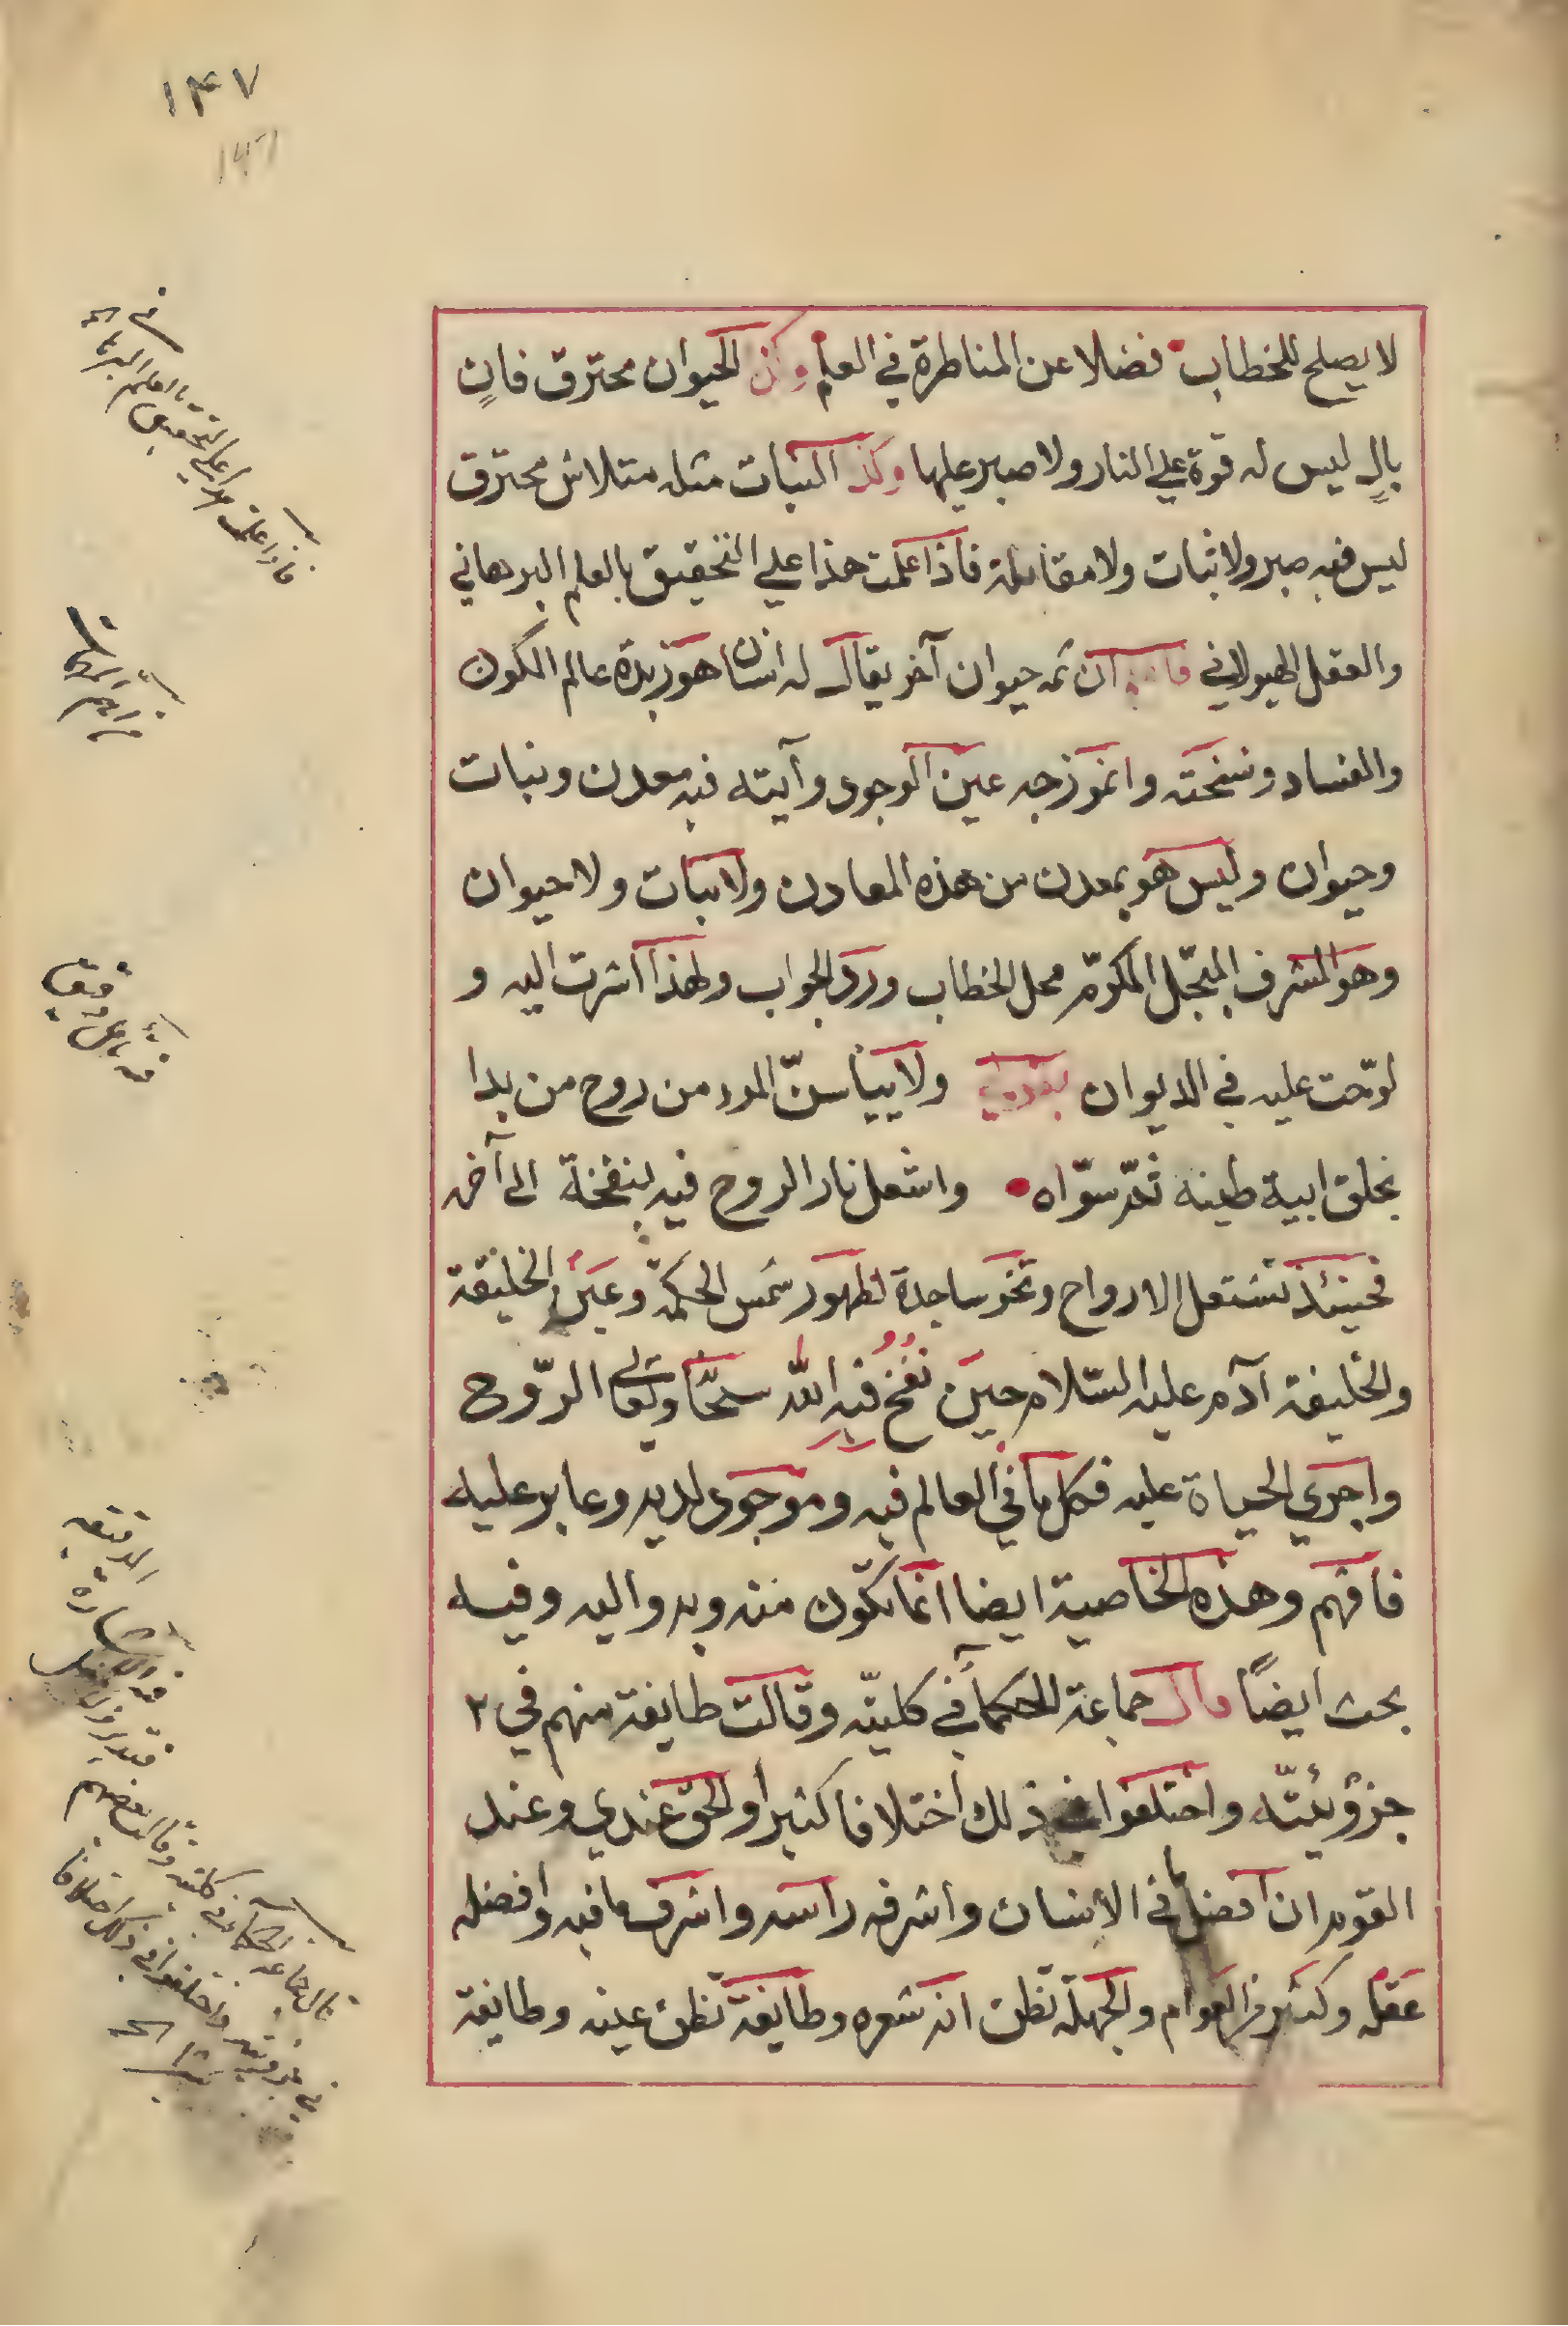 ۱۴۷
لا يصلح للخطاب فضلا عن المناطرة في العلم وكذا الحيوان محترق فانٍ
بالٍ ليس له قوة علي النار ولا صبر عليها وكذا النبات مثله متلاش محترق
ليس فيه صبر ولا ثبات ولا مقابلة فاذا علمت هذا علي التحقيق بالعلم البرهاني
والعقل الهيولاني فاعلم ان ثمه حيوان آخر يقال له انسان هو زبدة عالم الكون
والفساد ونسخته وانموزجه عين الوجود وآيته فيه معدن ونبات
وحيوان وليس هو بمعدن من هذه المعادن ولا نبات ولا حيوان
وهو المشرف المبجّل المكرّم محل الخطاب وردّ الجواب ولهذا اشرت اليه و
لوّحت عليه في الديوان بقولي ولا ييأسنّ المرء من روح من بدا
بخلق ابيه طينه ثمّ سوّاه واشعل نار الروح فيه بنفخة الي آخره
فحينئذ تشتعل الارواح وتخر ساجدة لظهور شمس الحكمة وعين الخليقة
والخليفة آدم عليه السّلام حين نُفخ فيه الله سبحانه وتعالى الرّوح
واجري الحياة عليه فكل ما في العالم فيه وموجود لديه وعابر عليه
فافهم وهذه الخاصية ايضا انما تكّون منه وبه واليه وفيه
بحث ايضًا قال جماعة الحكمأ في كليته وقالت طايفة منهم في ٢
جزؤيئته واختلفوا في ذلك اختلافا كثيرا والحق عندي وعند
القوم ان افضل ما في الانسان واشرفه راسه واشرف ما فيه وافضله
عقله وكثير من العوام والجهلة تظن انه شعره وطايفة تظن عينه وطايفة
فاذا علمت هذا علي التحقيق بالعلم البرهاني
قال جماعة الحكماء في كليته وقال بعضهم
في جزويته واختلفوا في ذلك اختلافا